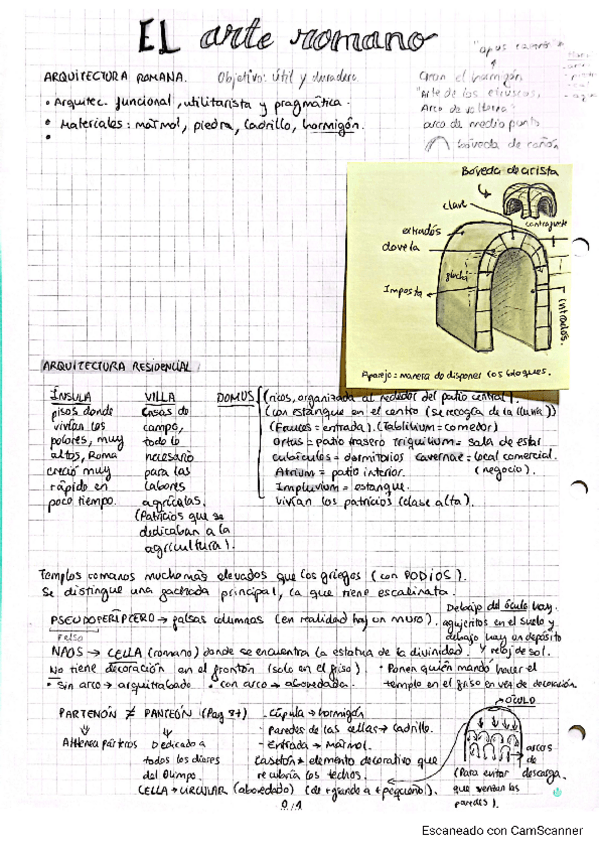 EL arte romano
"opus caementi
ARQUITECTURA ROMANA. Objetivo: útil y duradero.
Crean el hormigón
• Arquitec. funcional, utilitarista y pragmática.
"Arte de los etruscos,
Arco de volteras
• Materiales: mármol, piedra, ladrillo, hormigón.
arco de medio punto
bóveda de cañón
Bóveda de arista
clave
contrafuerte
extradós
dovela
flecha
Imposta
intradós.
Aparejo = manera de disponer los bloques.
ARQUITECTURA RESIDENCIAL
ÍNSULA
pisos donde
vivían los
pobres, muy
altos, Roma
creció muy
rápido en
poco tiempo.
VILLA
Casas de
campo,
todo lo
necesario
para las
labores
agrícolas.
(Patricios que se
dedicaban a la
agricultura).
DOMUS (ricos, organizada al rededor del patio central).
(con estanque en el centro (se recogía de la lluvia))
(Fauces = entrada). (Tablilium = comedor)
Ortus = patio trasero Triquilium = sala de estar
cubículos = dormitorios Cavernae = local comercial.
Atrium = patio interior. (negocio).
Impluvium = estanque.
Vivían los patricios (clase alta).
Templos romanos mucho más elevados que los griegos (con PODIOS).
Se distingue una fachada principal, la que tiene escalinata.
PSEUDOPERÍPTERO → falsas columnas (en realidad hay un muro).
Falso
Debajo del óculo hay
agujeritos en el suelo y
debajo hay un depósito
y reloj de sol.
NAOS → CELLA (romano) donde se encuentra la estatua de la divinidad.
No tiene decoración en el frontón (solo en el friso)
• Sin arco → arquitrabado • con arco → abovedada.
• Ponen quién mandó hacer el
templo en el friso en vez de decoración
PARTENÓN ≠ PANTEÓN (Pag 87)
Athenea párteros
Dedicado a
todos los dioses
del Olimpo.
- Cúpula → hormigón
- Paredes de las cellas → ladrillo.
- Entrada → mármol.
Casetón → elemento decorativo que
recubría los techos.
CELLA → CIRCULAR (abovedado) (de + grande a + pequeño).
→ ÓCULO
arcos
de
descarga.
(Para evitar
que venzan las
paredes).
Escaneado con CamScanner